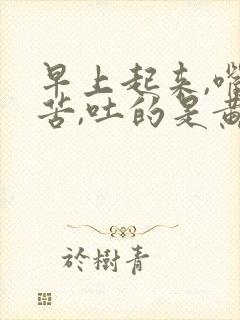 早上起来,嘴
苦,吐的是黄
於樹青